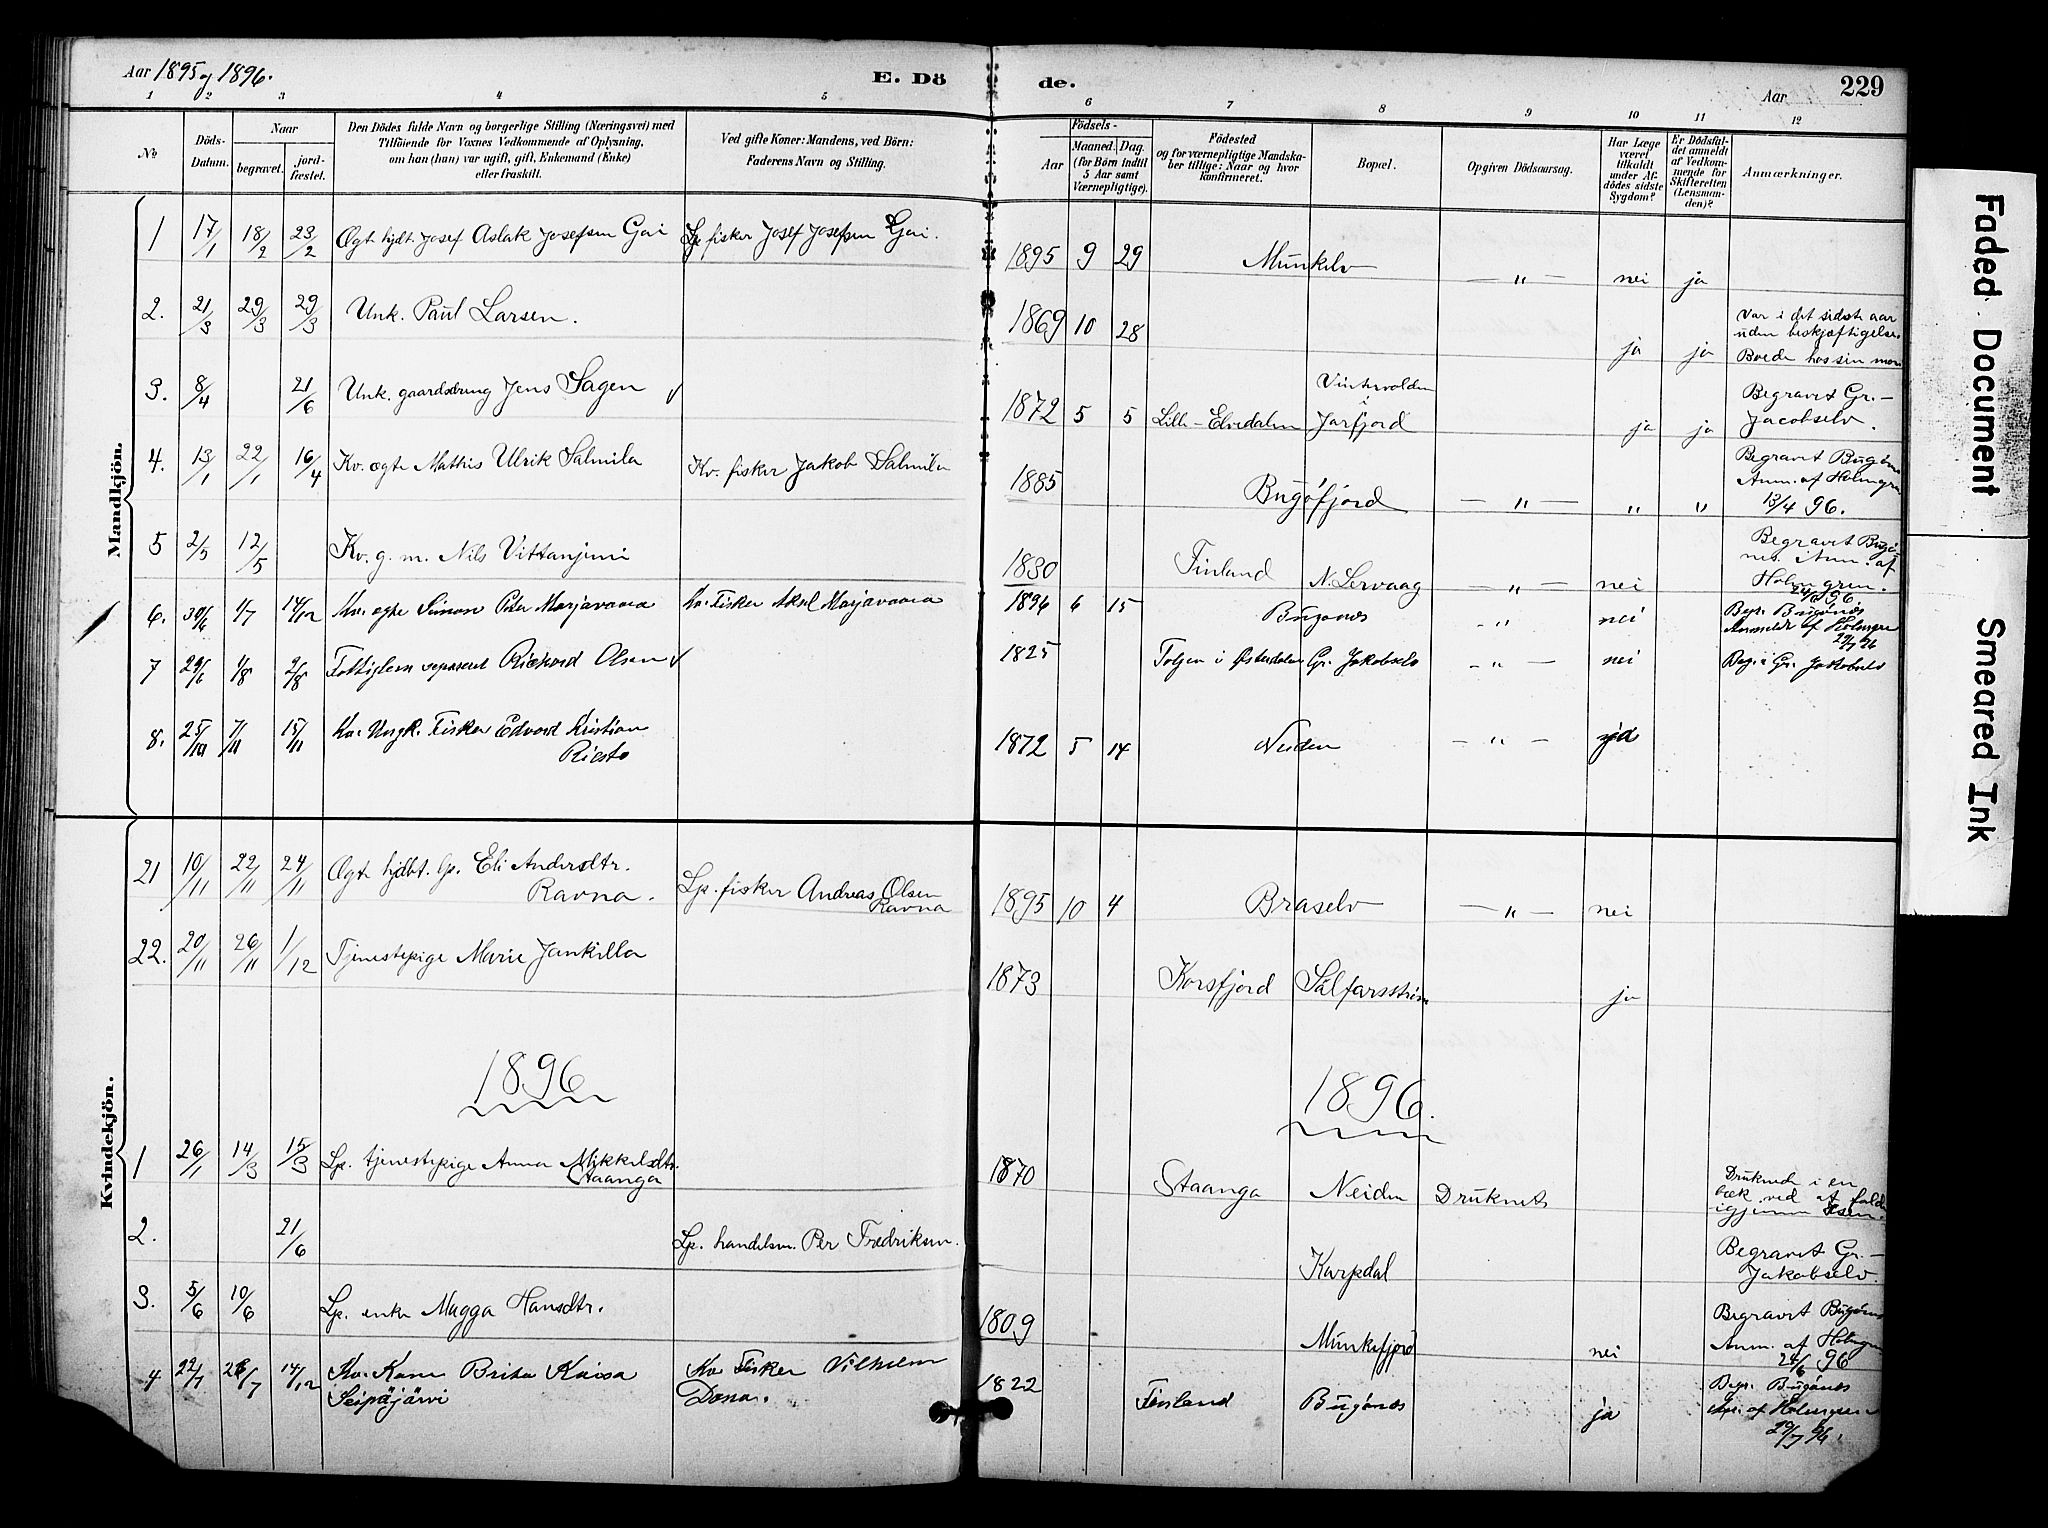 Aar 1895 og 1896.
E. Dö
de.
Aar
229
1 2 3 4 5 6 7 8 9 10 11 12
No
Döds-
Datum.
Naar
begravet.
jord-
fæstet.
Den Dödes fulde Navn og borgerlige Stilling (Næringsvei) med
Tilföiende for Voxnes Vedkommende af Oplysning,
om han (hun) var ugift, gift, Enkemand (Enke)
eller fraskilt.
Ved gifte Koner: Mandens, ved Börn:
Faderens Navn og Stilling.
Födsels-
Aar
Maaned. Dag.
(for Börn indtil
5 Aar samt
Værnepligtige).
Födested
og for værnepligtige Mandska-
ber tillige: Naar og hvor
Konfirmeret.
Bopæl.
Opgiven Dödsaarsag.
Har Læge
været
tilkaldt
under Af-
dödes sidste
Sygdom?
Er Dödsfal-
det anmeldt
af Vedkom-
mende for
Skifteretten
(Lensman-
den)?
Anmærkninger.
Mandkjön.
1 17/1 18/2 23/2 Ægt. hjdt. Josef Aslak Josefsen Gai Lp. fisker Josef Josefsen Gai. 1895 9 29 Munkelv — „ — nei ja
2. 21/3 29/3 29/3 Unk. Paul Larsen. 1869 10 28 ja ja Var i det sidste aar
uden beskjæftigelse.
Boede hos sin mor
3. 8/4 21/6 Unk. gaardsdreng Jens Sagen √ 1872 5 5 Lille-Elvedalen Vintervolden
i
Jarfjord ja ja Begravet Gr.-
Jacobselv.
4. 13/1 22/1 16/4 Kv. ægte Mathis Ulrik Salmila Kv. fisker Jakob Salmila 1885 Bugöfjord — „ — „ „ Begravet Bugönes
Anm. af Holmgren
13/4 96.
5 2/5 12/5 Kv. g. m. Nils Vittanjemi 1830 Finland N. Lervaag — „ — nei Begravet Bugö-
nes. Anm. af
Holmgren.
24/6 96.
6. 30/6 1/7 14/12 Kv. ægte Simon Peter Marjavaara Kv. Fisker Aksel Marjavaara 1896 6 15 Bugönes - „ - nei Begr. Bugönes
Anmeldt af Holmgren
29/7 96
7 29/6 1/8 2/8 Fattiglem separeret Rickard Olsen √ 1825 Tolgen i Østerdalen Gr. Jakobselv — „ — nei Begr. i Gr. Jakobselv
8. 25/10 7/11 15/11 Kv. Ungk. Fisker Edvard Kristian
Riesto 1872 5 14 Neiden — „ — ja
Kvindekjön.
21 10/11 22/11 24/11 Ægt. hjdbt. Lp. Eli Andersdtr.
Ravna. Lp. fisker Andreas Olsen
Ravna 1895 10 4 Braselv — „ — nei
22. 20/11 26/11 1/12 Tjenestepige Marie Jankilla 1873 Korsfjord Salfarsström ja
1896 1896.
1 26/1 14/3 15/3 Lp. tjenestepige Anna Mikkelsdtr.
Staanga 1870 Staanga Neiden Druknet Druknede i en
bæk ved at falde
igjennem Isen.
2. 21/6 Lp. handelsm. Per Fredriksen. Karpdal Begravet Gr.-
Jakobselv.
3. 5/6 10/6 Lp. enke Magga Hansdtr. 1809 Munkefjord nei Begravet Bugönes
Anm. af Holmgren
24/6 96
4 22/7 26/7 14/12 Kv. Kone Brita Kaisa
Seipäjärvi Kv. Fisker Vilhelm
Dona. 1822 Finland Bugönes ja Begr. Bugönes
af Holmgren
29/7 96.
Faded Document
Smeared Ink